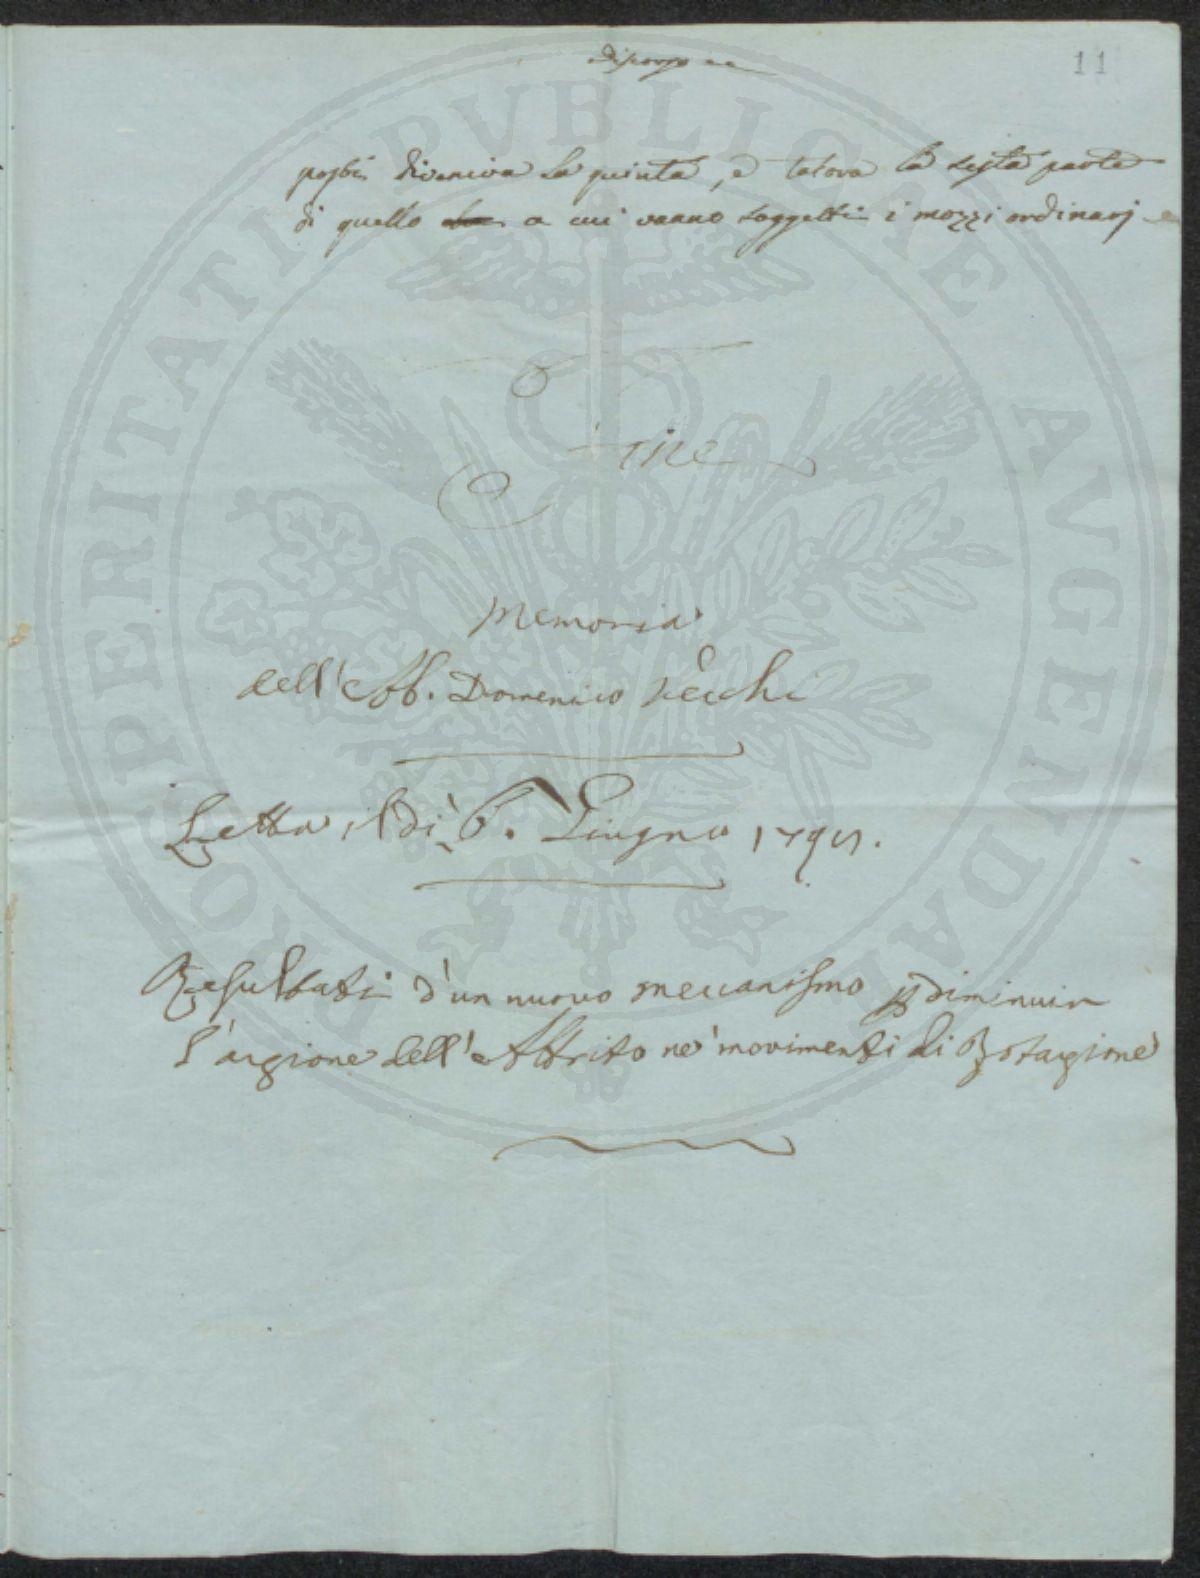 11
posti diveniva la quinta, e talora la sesta parte
di quello a cui vanno soggetti i mozzi ordinarj
Fine
Memoria
dell'Ab. Domenico Vecchi
Letta il dì 6. Giugno
Resultati d'un nuovo meccanismo p diminuir
l'azione dell'Attrito ne' movimenti di Rotazione
PROSPERITATI PVBLICAE AVGENDAE